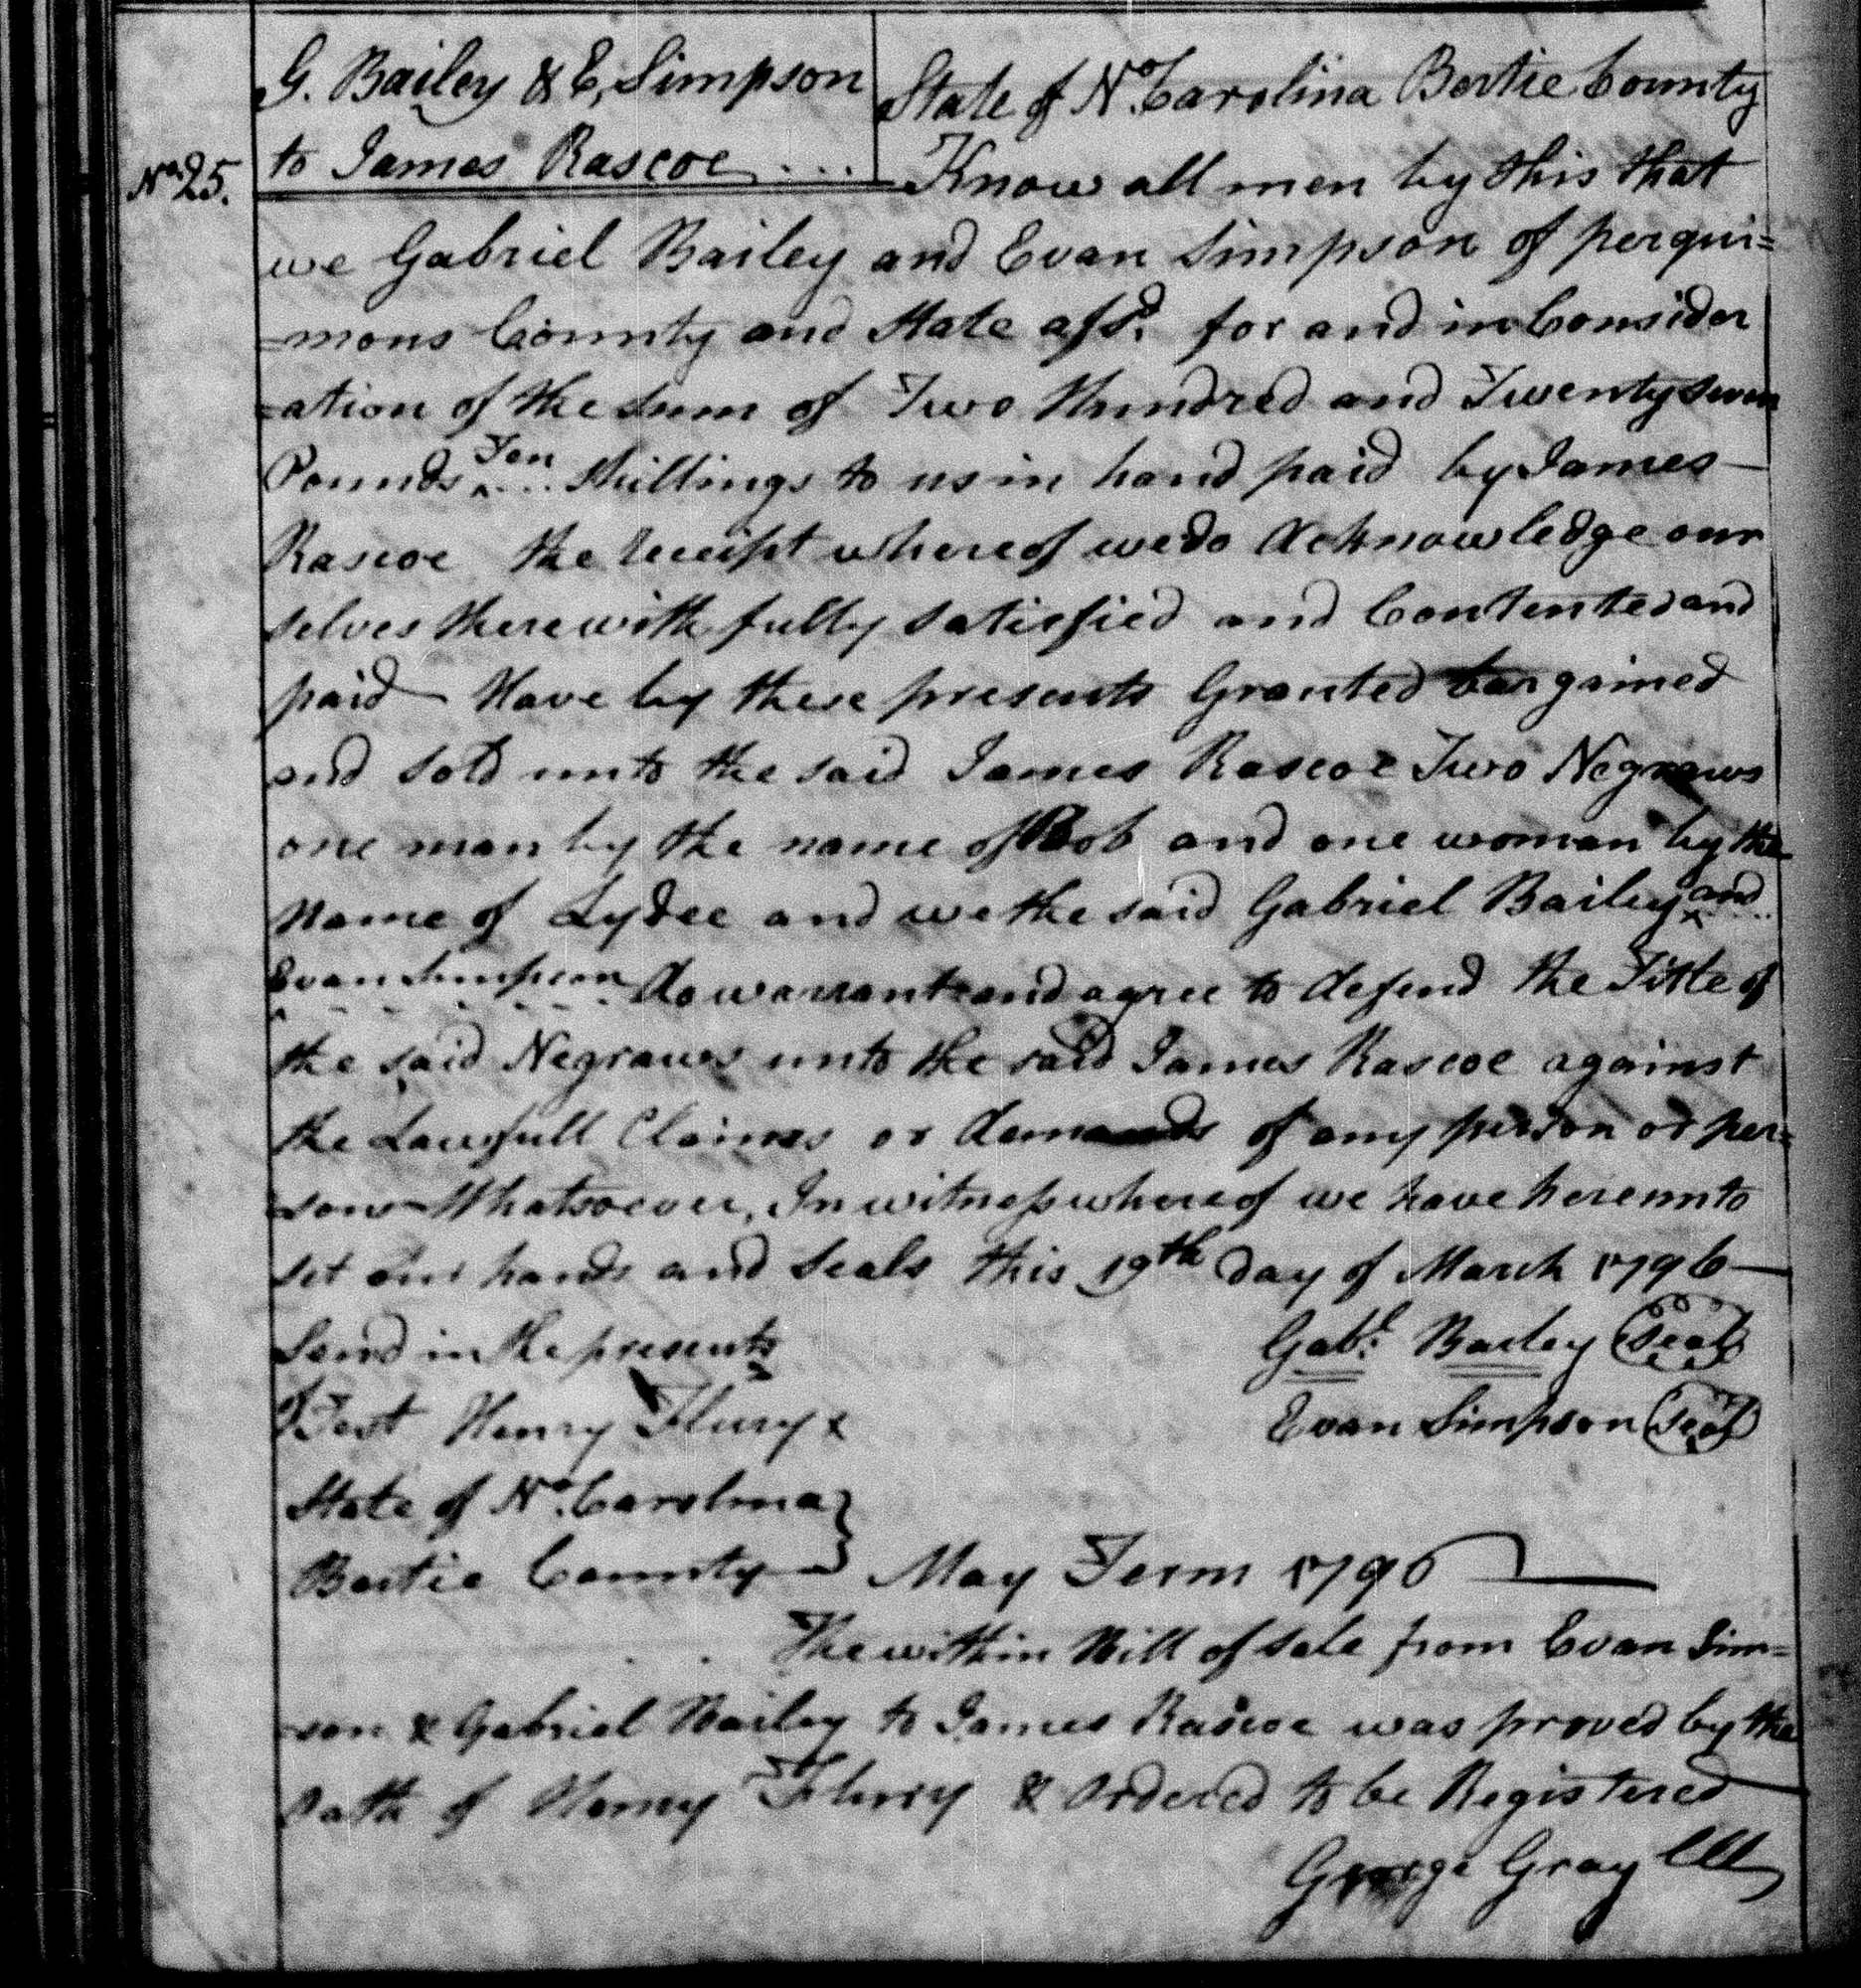 G. Bailey & E. Simpson
to James Rascoe ....
No. 25.
State of No. Carolina Bertie County
Know all men by this that
we Gabriel Bailey and Evan Simpson of perqui=
=mons County and State afsd. for and in Consider
=ation of the sum of Two Hundred and Twenty Seven
Pounds Ten Shillings to us in hand paid by James
Rascoe the receipt whereof we do Acknowledge our
selves therewith fully satisfied and Contented and
paid Have by these presents Granted bargained
and sold unto the said James Rascoe Two Negrows
one man by the name of Bob and one woman by the
Name of Lydee and we the said Gabriel Bailey and
Evan Simpson do warrant and agree to defend the Title of
the said Negrows unto the said James Rascoe against
the Lawfull Claims or demands of any person or per=
sons Whatsoever, In witness whereof we have hereunto
set our hands and Seals this 19th day of March 1796
Send in the presents
Gabl. Bailey (Seal)
Test Henry Flury x
Evan Simpson (Seal)
State of No. Carolina }
Bertie County } May Term 1796
The within Bill of Sale from Evan Sim=
=son & Gabriel Bailey to James Rascoe was proved by the
Oath of Henry Flurry & Ordered to be Registered
George Gray